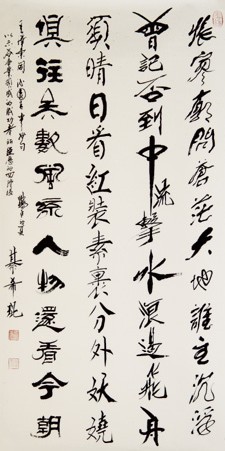 悵寥廓問蒼茫大地誰主沉浮
曾記否到中流擊水浪遏飛舟
須晴日看紅裝素裹分外妖嬈
俱往矣數風流人物還看今朝